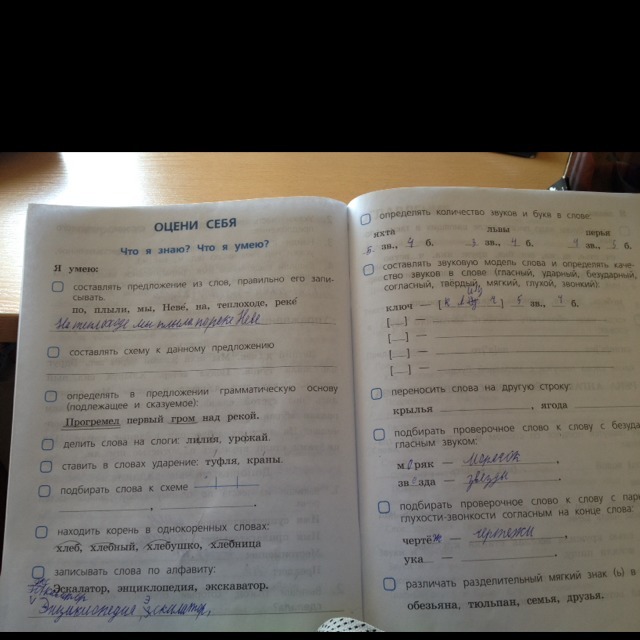 ОЦЕНИ СЕБЯ
Что я знаю? Что я умею?
Я умею:
составлять предложение из слов, правильно его запи-
сывать.
по, плыли, мы, Неве́, на, теплоходе, реке́
На теплоходе мы плыли по реке Неве
составлять схему к данному предложению
определять в предложении грамматическую основу
(подлежащее и сказуемое):
Прогремел первый гром над рекой.
делить слова на слоги: лилия, урожай.
ставить в словах ударение: туфля, краны.
подбирать слова к схеме
находить корень в однокоренных словах:
хлеб, хлебный, хлебушко, хлебница
записывать слова по алфавиту:
Эскалатор, энциклопедия, экскаватор.
Энциклопедия, эскалатор,
определять количество звуков и букв в слове:
яхта львы перья
5 зв., 4 б. 3 зв., 4 б. зв., 5 б.
составлять звуковую модель слова и определять каче-
ство звуков в слове (гласный, ударный, безударный,
согласный, твёрдый, мягкий, глухой, звонкий):
ключ — [ ] зв., б.
[...] —
[...] —
[...] —
[...] —
переносить слова на другую строку:
крылья , ягода
подбирать проверочное слово к слову с безуда
гласным звуком:
моряк —
зв зда — звёзды
подбирать проверочное слово к слову с пар
глухости-звонкости согласным на конце слова:
чертёж — чертежи
ука —
различать разделительный мягкий знак (ь) в
обезьяна, тюльпан, семья, друзья.